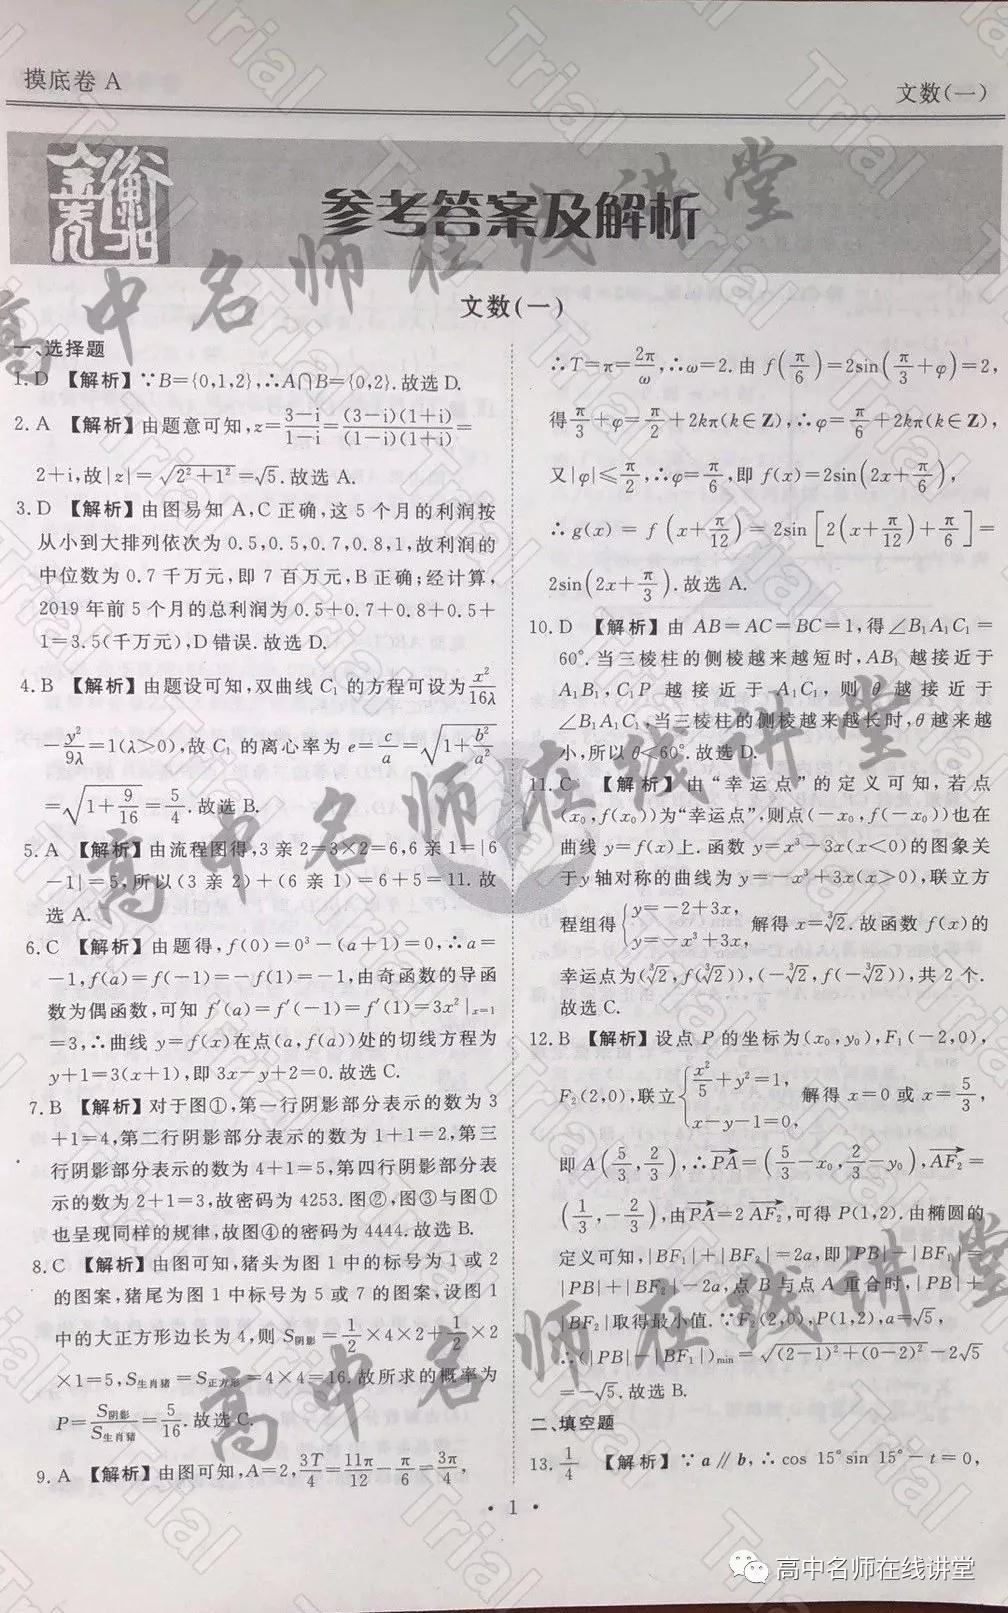 摸底卷 A
文数(一)
参考答案及解析
文数(一)
一、选择题
1. D 【解析】∵B={0,1,2},∴A∩B={0,2}.故选 D.
2. A 【解析】由题意可知,z=\frac{3-i}{1-i}=\frac{(3-i)(1+i)}{(1-i)(1+i)}=
2+i,故|z|=\sqrt{2^2+1^2}=\sqrt{5}.故选 A.
3. D 【解析】由图易知 A,C 正确,这 5 个月的利润按
从小到大排列依次为 0.5,0.5,0.7,0.8,1,故利润的
中位数为 0.7 千万元,即 7 百万元,B 正确;经计算,
2019 年前 5 个月的总利润为 0.5+0.7+0.8+0.5+
1=3.5(千万元),D 错误.故选 D.
4. B 【解析】由题设可知,双曲线 C₁ 的方程可设为\frac{x^2}{16λ}
-\frac{y^2}{9λ}=1(λ>0),故 C₁ 的离心率为 e=\frac{c}{a}=\sqrt{1+\frac{b^2}{a^2}}
=\sqrt{1+\frac{9}{16}}=\frac{5}{4}.故选 B.
5. A 【解析】由流程图得,3 亲 2=3×2=6,6 亲 1=|6
-1|=5,所以(3 亲 2)+(6 亲 1)=6+5=11.故
选 A.
6. C 【解析】由题得,f(0)=0³-(a+1)=0,∴a=
-1,f(a)=f(-1)=-f(1)=-1,由奇函数的导函
数为偶函数,可知 f′(a)=f′(-1)=f′(1)=3x²|ₓ₌₁
=3,∴曲线 y=f(x)在点(a,f(a))处的切线方程为
y+1=3(x+1),即 3x-y+2=0.故选 C.
7. B 【解析】对于图①,第一行阴影部分表示的数为 3
+1=4,第二行阴影部分表示的数为 1+1=2,第三
行阴影部分表示的数为 4+1=5,第四行阴影部分表
示的数为 2+1=3,故密码为 4253.图②,图③与图①
也呈现同样的规律,故图④的密码为 4444.故选 B.
8. C 【解析】由图可知,猪头为图 1 中的标号为 1 或 2
的图案,猪尾为图 1 中标号为 5 或 7 的图案,设图 1
中的大正方形边长为 4,则 S阴影=\frac{1}{2}×4×2+\frac{1}{2}×2
×1=5,S生肖猪=S正方形=4×4=16.故所求的概率为
P=\frac{S阴影}{S生肖猪}=\frac{5}{16}.故选 C.
9. A 【解析】由图可知,A=2,\frac{3T}{4}=\frac{11π}{12}-\frac{π}{6}=\frac{3π}{4},
∴T=π=\frac{2π}{ω},∴ω=2.由 f(\frac{π}{6})=2sin(\frac{π}{3}+φ)=2,
得\frac{π}{3}+φ=\frac{π}{2}+2kπ(k∈Z),∴φ=\frac{π}{6}+2kπ(k∈Z),
又|φ|≤\frac{π}{2},∴φ=\frac{π}{6},即 f(x)=2sin(2x+\frac{π}{6}),
∴g(x)=f(x+\frac{π}{12})=2sin[2(x+\frac{π}{12})+\frac{π}{6}]=
2sin(2x+\frac{π}{3}).故选 A.
10. D 【解析】由 AB=AC=BC=1,得∠B₁A₁C₁=
60°.当三棱柱的侧棱越来越短时,AB₁ 越接近于
A₁B₁,C₁P 越接近于 A₁C₁,则 θ 越接近于
∠B₁A₁C₁,当三棱柱的侧棱越来越长时,θ 越来越
小,所以 θ<60°.故选 D.
11. C 【解析】由“幸运点”的定义可知,若点
(x₀,f(x₀))为“幸运点”,则点(-x₀,f(-x₀))也在
曲线 y=f(x)上.函数 y=x³-3x(x<0)的图象关
于 y 轴对称的曲线为 y=-x³+3x(x>0),联立方
程组得{y=-2+3x, y=-x³+3x,解得 x=∛2.故函数 f(x)的
幸运点为(∛2,f(∛2)),(-∛2,f(-∛2)),共 2 个.
故选 C.
12. B 【解析】设点 P 的坐标为(x₀,y₀),F₁(-2,0),
F₂(2,0),联立{\frac{x^2}{5}+y²=1, x-y-1=0, 解得 x=0 或 x=\frac{5}{3},
即 A(\frac{5}{3},\frac{2}{3}),∴\overrightarrow{PA}=(\frac{5}{3}-x₀,\frac{2}{3}-y₀),\overrightarrow{AF₂}=
(\frac{1}{3},-\frac{2}{3}),由\overrightarrow{PA}=2\overrightarrow{AF₂},可得 P(1,2).由椭圆的
定义可知,|BF₁|+|BF₂|=2a,即|PB|-|BF₁|=
|PB|+|BF₂|-2a,点 B 与点 A 重合时,|PB|+
|BF₂|取得最小值.∵F₂(2,0),P(1,2),a=\sqrt{5},
∴(|PB|-|BF₁|)min=\sqrt{(2-1)²+(0-2)²}-2\sqrt{5}
=-\sqrt{5}.故选 B.
二、填空题
13. \frac{1}{4} 【解析】∵a∥b,∴cos 15°sin 15°-t=0,
• 1 •
高中名师在线讲堂
高中名师在线讲堂
高中名师在线讲堂
高中名师在线讲堂
Trial